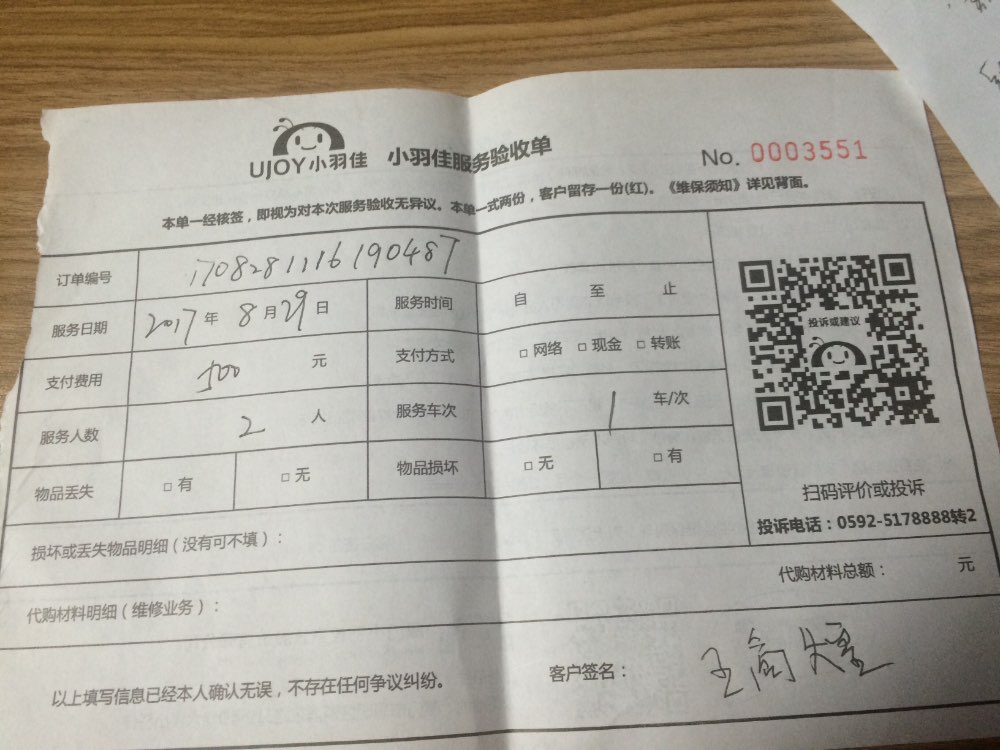 UJOY小羽佳 小羽佳服务验收单
No. 0003551
本单一经核签，即视为对本次服务验收无异议。本单一式两份，客户留存一份(红)。《维保须知》详见背面。
订单编号 1708281116190487
服务日期 2017年 8月29日 服务时间 自 至 止
支付费用 500 元 支付方式 □ 网络 □ 现金 □ 转账
服务人数 2 人 服务车次 1 车/次
物品丢失 □ 有 □ 无 物品损坏 □ 无 □ 有
投诉或建议
扫码评价或投诉
投诉电话：0592-5178888转2
损坏或丢失物品明细（没有可不填）：
代购材料明细（维修业务）： 代购材料总额： 元
以上填写信息已经本人确认无误，不存在任何争议纠纷。 客户签名：